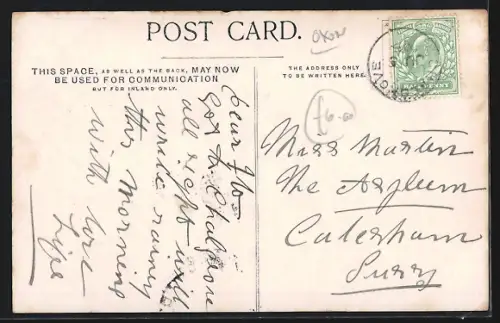 POST CARD.
oxon
THIS SPACE, AS WELL AS THE BACK, MAY NOW
BE USED FOR COMMUNICATION
BUT FOR INLAND ONLY.
THE ADDRESS ONLY
TO BE WRITTEN HERE.
dear Flo
Got to Chalgrove
all right will
write
this morning
with love
£6.00
Miss Martin
The Asylum
Caterham
Surry